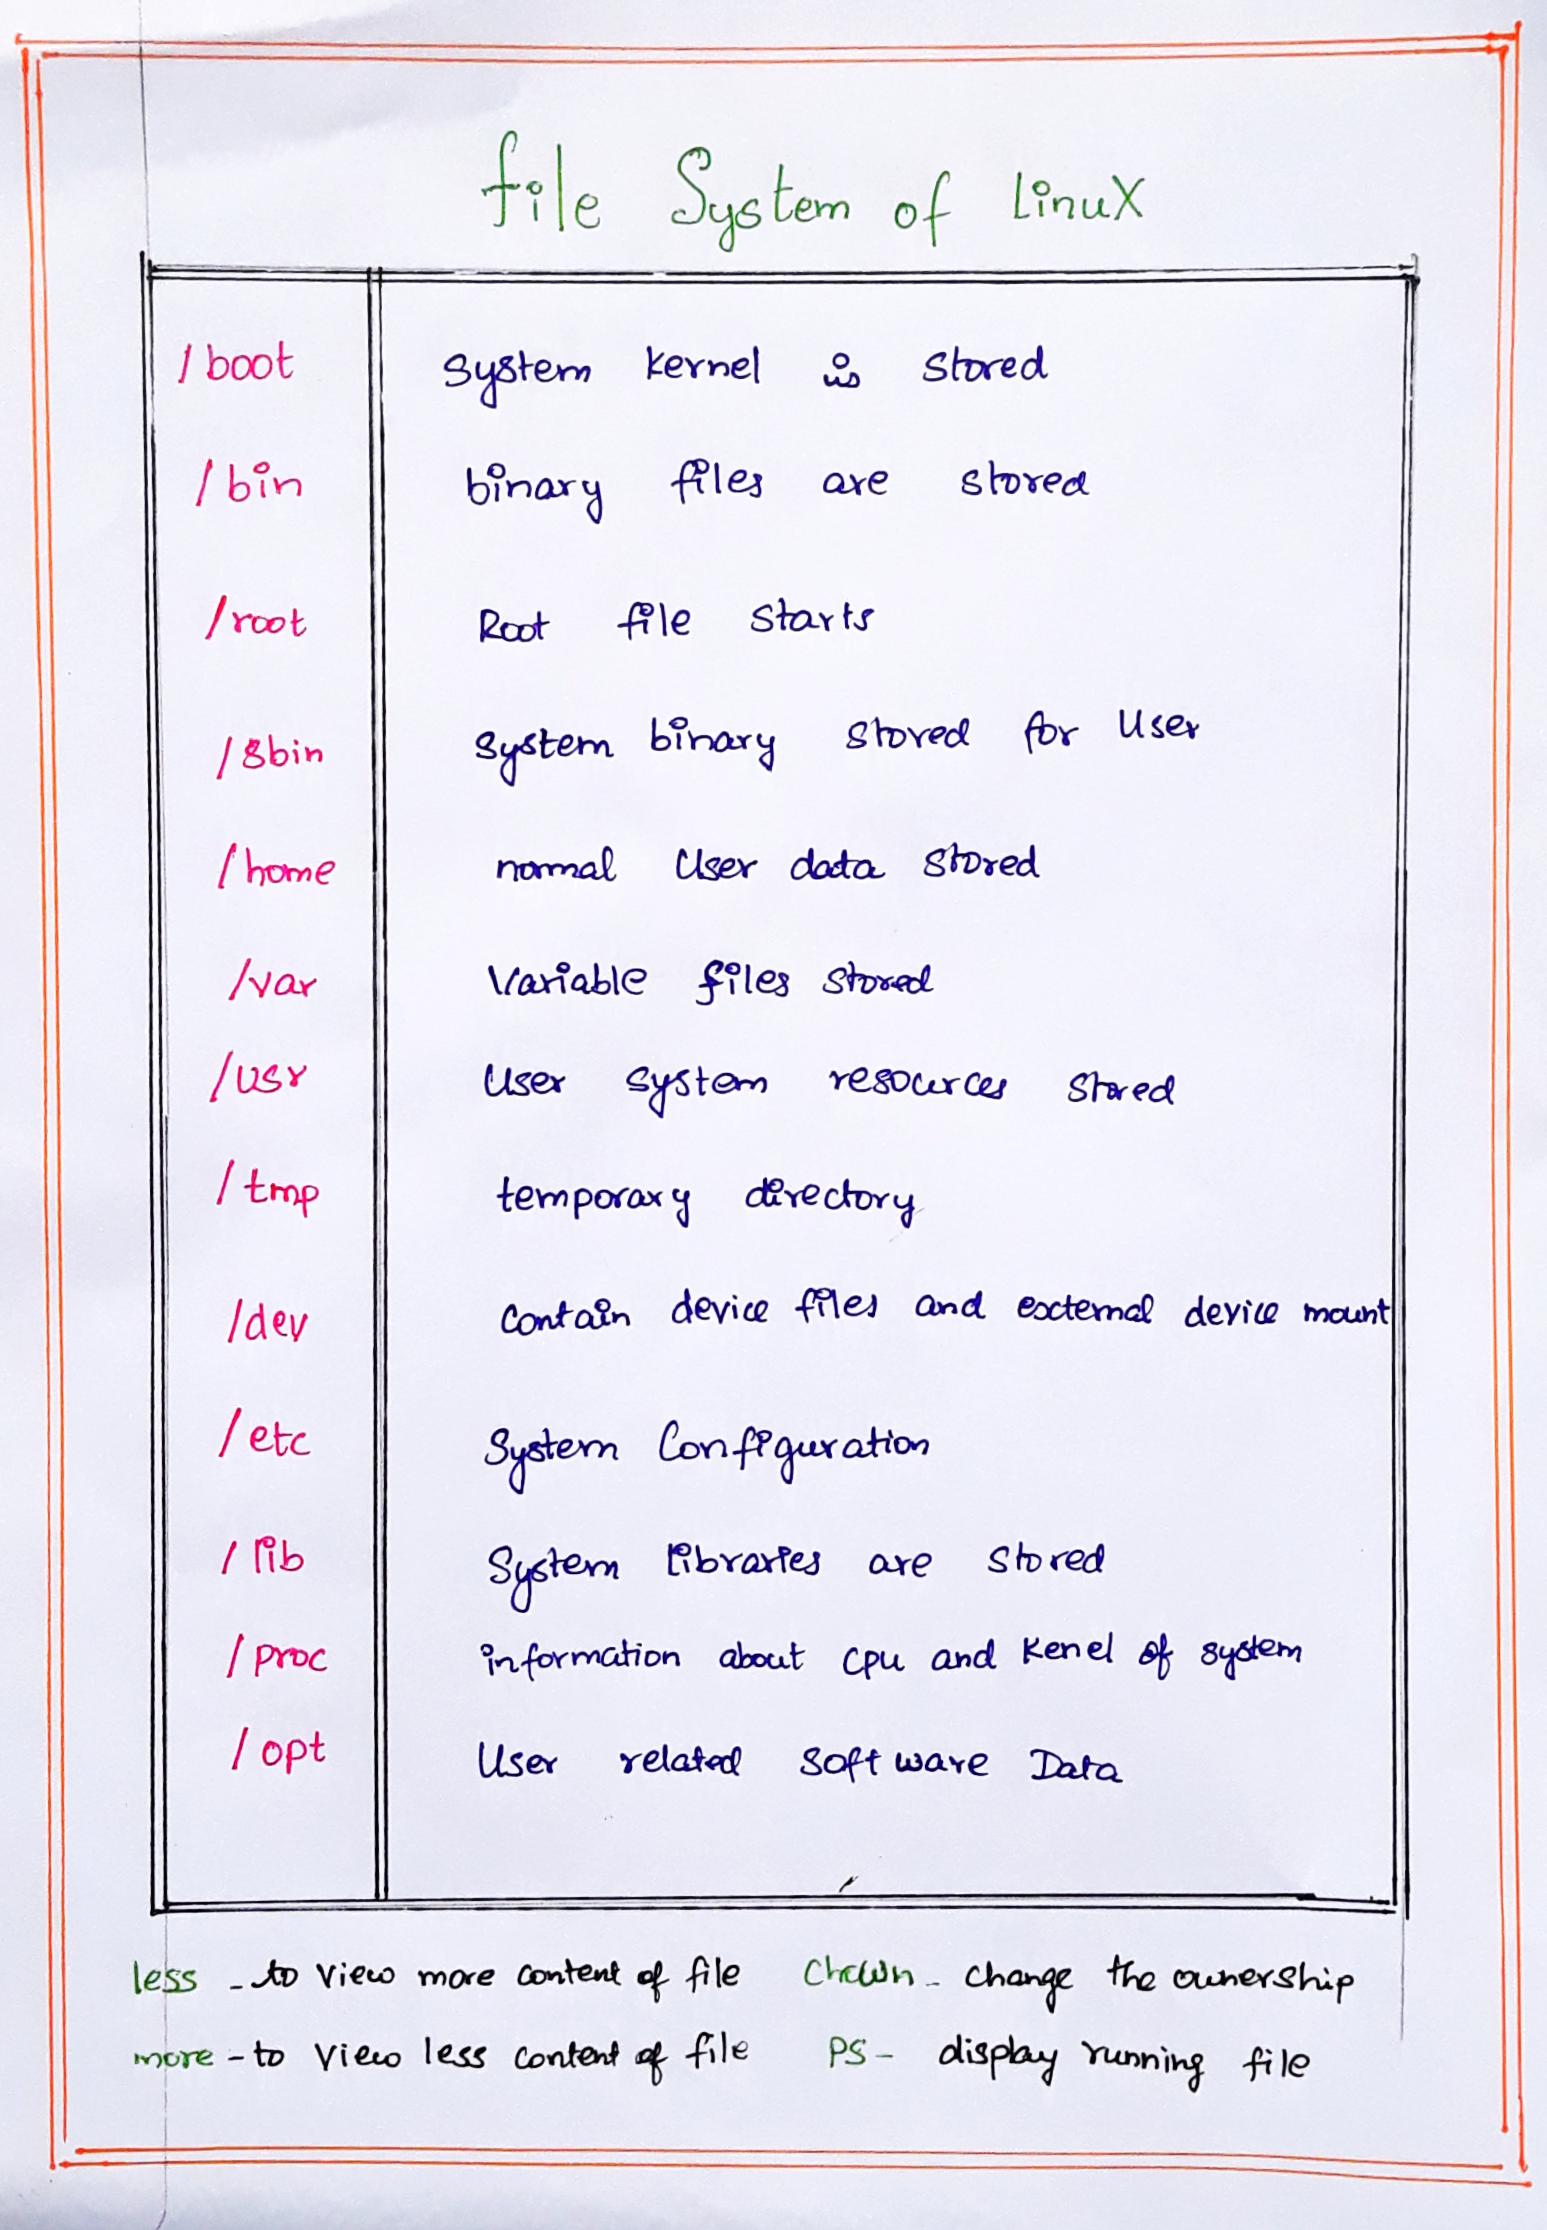 file System of Linux
/boot System kernel is stored
/bin binary files are stored
/root Root file starts
/sbin System binary stored for User
/home normal User data stored
/var Variable files stored
/usr User system resources stored
/tmp temporary directory
/dev Contain device files and external device mount
/etc System Configuration
/lib System libraries are stored
/proc information about cpu and Kenel of system
/opt User related software Data
less - to view more content of file Chown - change the ownership
more - to view less content of file PS - display running file